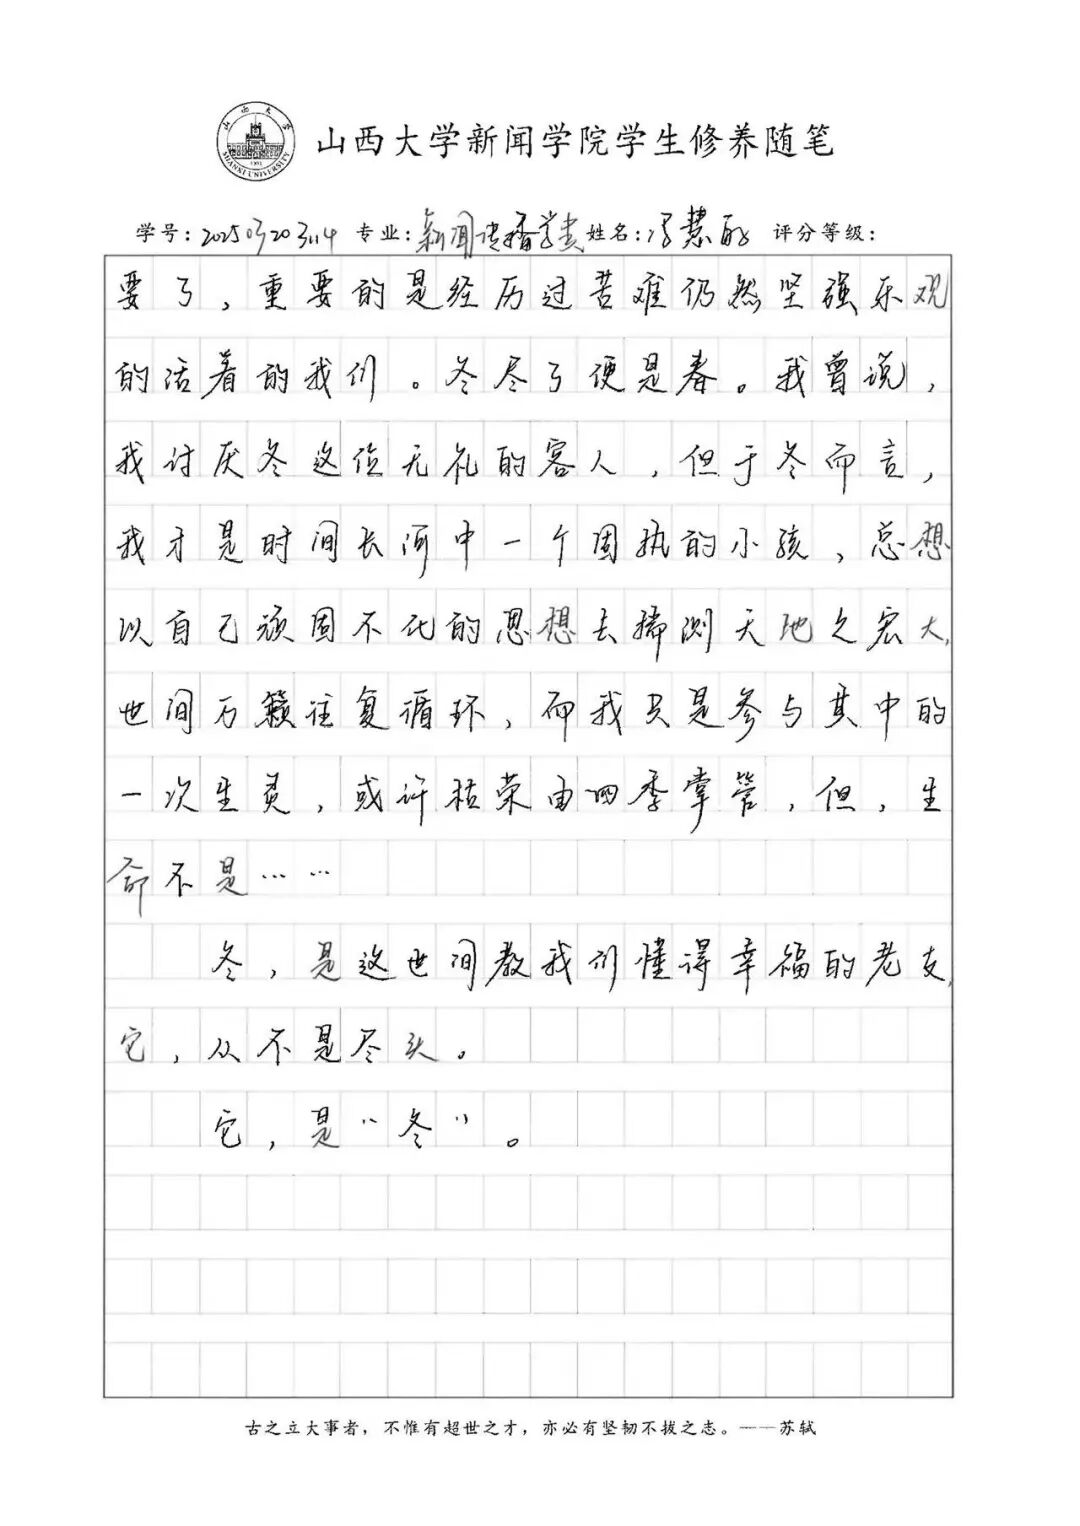 山西大学
SHANXI UNIVERSITY
1902
山西大学新闻学院学生修养随笔
学号: 专业:新闻传播学类 姓名:冯慧 评分等级:
要了，重要的是经历过苦难仍然坚强乐观
的活着的我们。冬尽了便是春。我曾说，
我讨厌冬这位无礼的客人，但于冬而言，
我才是时间长河中一个固执的小孩，总想
以自己顽固不化的思想去揣测天地之宏大，
世间万籁往复循环，而我只是参与其中的
一次生灵，或许枯荣由四季掌管，但，生
命不是……
冬，是这世间教我们懂得幸福的老友，
它，从不是尽头。
它，是“冬”。
古之立大事者，不惟有超世之才，亦必有坚韧不拔之志。——苏轼